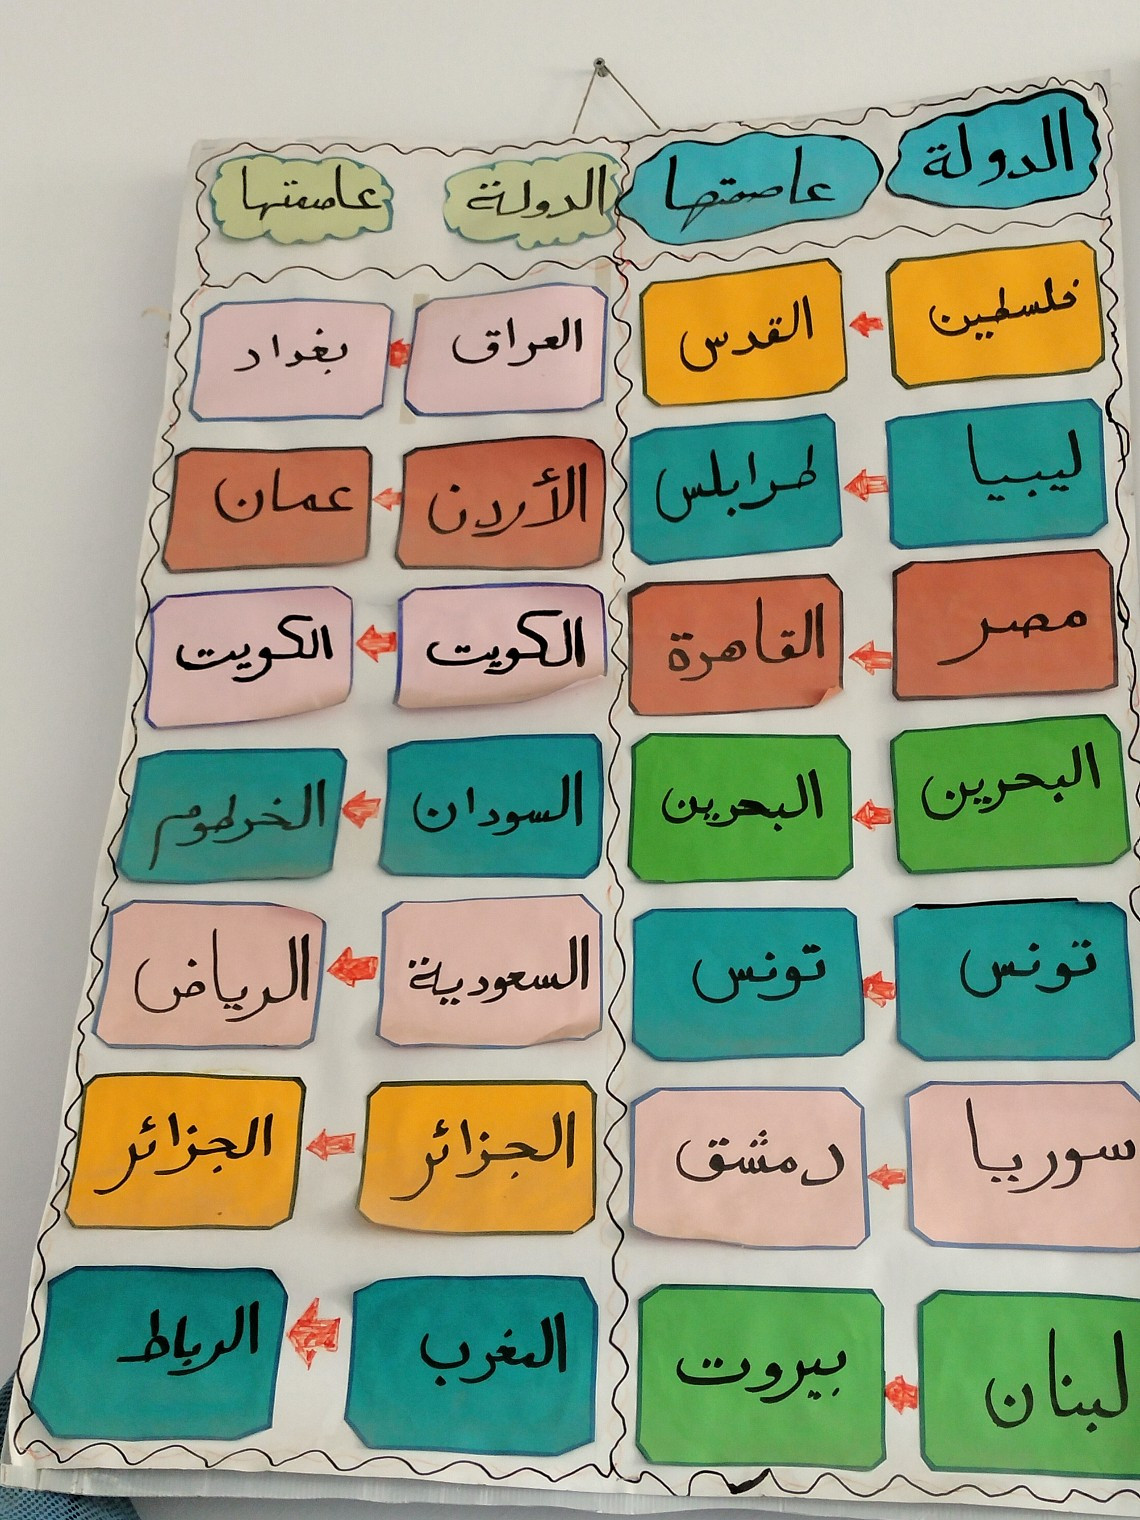 الدولة عاصمتها
فلسطين القدس
ليبيا طرابلس
مصر القاهرة
البحرين البحرين
تونس تونس
سوريا دمشق
لبنان بيروت
الدولة عاصمتها
العراق بغداد
الأردن عمان
الكويت الكويت
السودان الخرطوم
السعودية الرياض
الجزائر الجزائر
المغرب الرباط